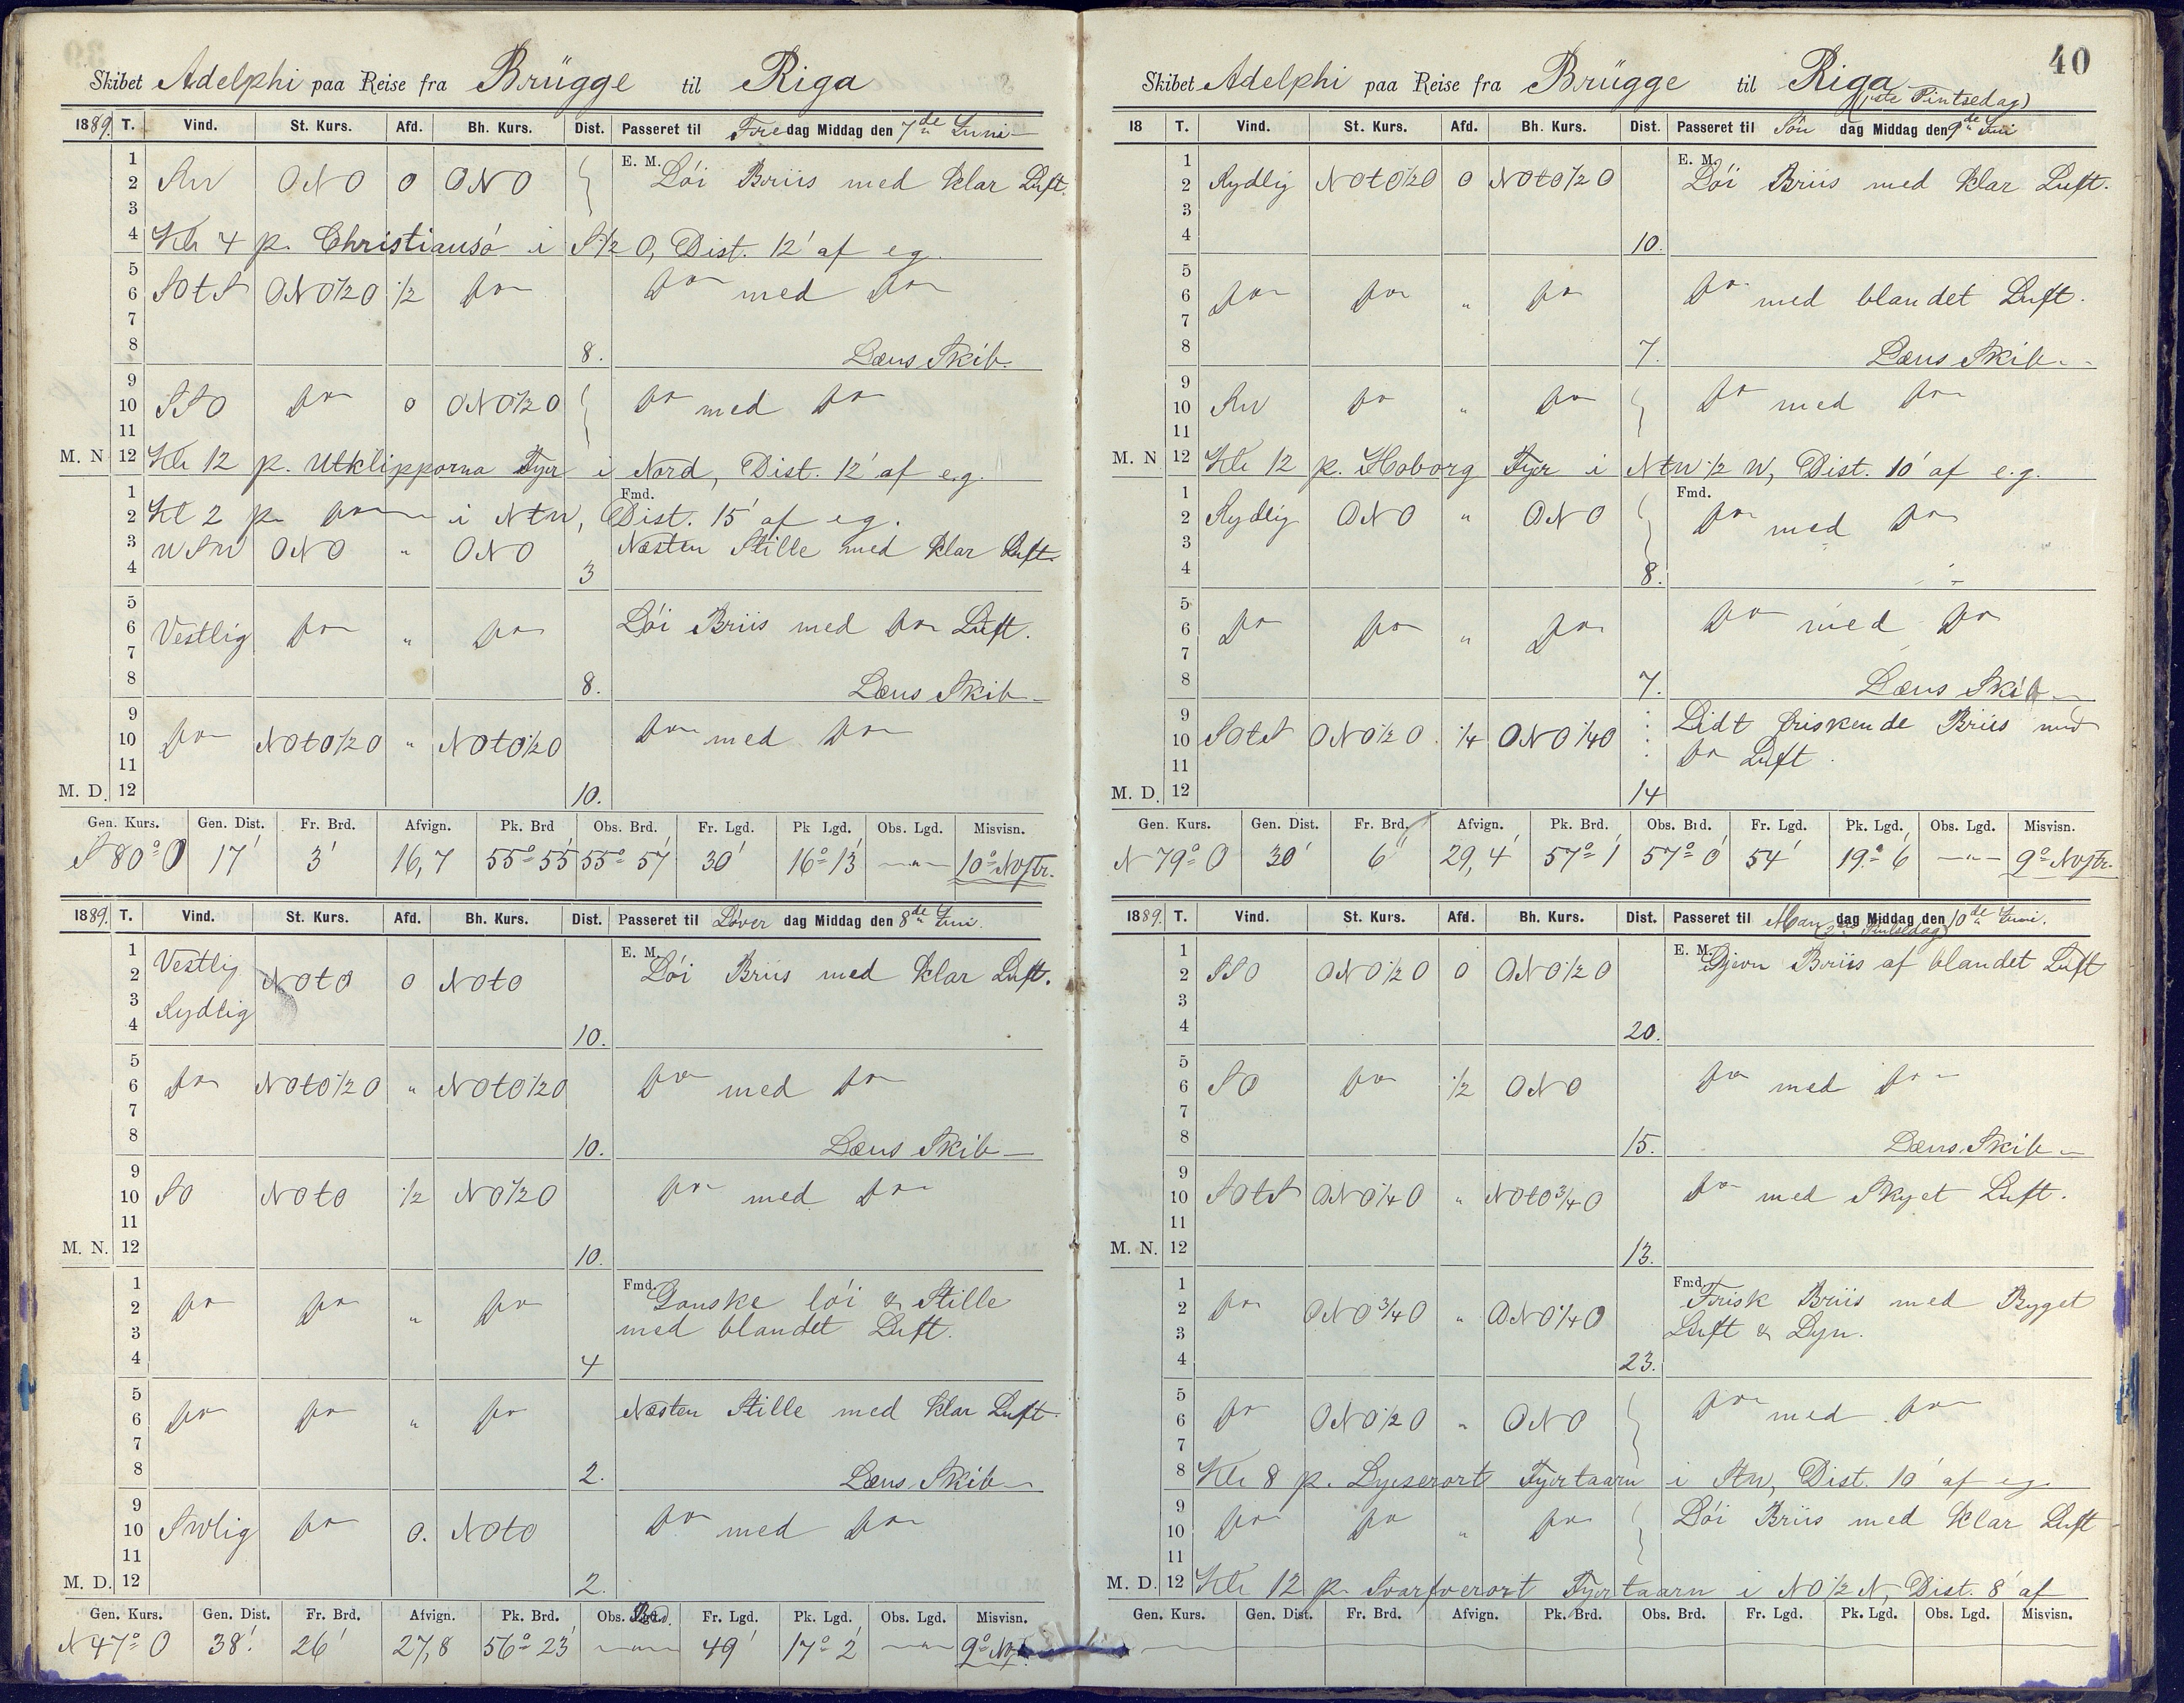 Skibet Adelphi paa Reise fra Brügge til Riga
1889. T. Vind. St. Kurs. Afd. Bh. Kurs. Dist. Passeret til Fredag Middag den 7de Juni
1
2 SW ONO 0 ONO E. M. Löi Briis med klar Luft.
3
4 Kl 4 p. Christiansö i S 1/2 O, Dist. 12' af e.g.
5
6 SOtS ONO 1/2 O 1/2 do do med do
7
8 8. Læns Skib.
9
10 SSO do 0 ONO 1/2 O do med do
11
M. N 12 Kl 12 p. Utklipporna Fyr i Nord, Dist. 12' af e.g.
1 Fmd.
2 Kl 2 p. do i NtW, Dist. 15' af e.g.
3 WSW ONO " ONO Næsten Stille med klar Luft.
4 3
5
6 Vestlig do " do Löi Briis med do Luft.
7
8 8. Læns Skib
9
10 do NOtO 1/2 O " NOtO 1/2 O do med do
11
M. D. 12 10.
Gen. Kurs. Gen. Dist. Fr. Brd. Afvign. Pk. Brd Obs. Brd. Fr. Lgd. Pk Lgd. Obs. Lgd. Misvisn.
S 80° O 17' 3' 16,7 55° 55' 55° 57' 30' 16° 13' —"— 10° NVstr.
1889. T. Vind. St. Kurs. Afd. Bh. Kurs. Dist. Passeret til Löver dag Middag den 8de Juni.
1 Vestlig E. M.
2 NOtO 0 NOtO Löi Briis med klar Luft.
3 Sydlig
4 10.
5
6 do NOtO 1/2 O " NOtO 1/2 O do med do
7
8 10. Læns Skib
9
10 SO NOtO 1/2 NO 1/2 O do med do
11
M. N. 12 10.
1 Fmd. Ganske löi & Stille
2 do do " do med blandet Luft.
3
4 4
5
6 do do " do Næsten Stille med klar Luft.
7
8 2. Læns Skib
9
10 SWlig do 0. NOtO do med do
11
M. D. 12 2.
Gen. Kurs. Gen. Dist. Fr. Brd. Afvign. Pk. Brd. Obs. Brd. Fr. Lgd. Pk. Lgd. Obs. Lgd. Misvisn.
N 47° O 38' 26' 27,8 56° 23' —"— 49' 17° 2' —"— 9°
40
Skibet Adelphi paa Reise fra Brügge til Riga
(1ste Pintsedag)
18 T. Vind. St. Kurs. Afd. Bh. Kurs. Dist. Passeret til Sön dag Middag den 9de Juni
1 E. M.
2 Sydlig NOtO 1/2 O 0 NOtO 1/2 O Löi Briis med klar Luft.
3
4 10.
5
6 do do " do do med blandet Luft.
7
8 7. Læns Skib
9
10 SW do " do do med do
11
M. N 12 Kl 12 p. Hoborg Fyr i NtW 1/2 W, Dist. 10' af e.g.
1 Fmd.
2 Sydlig ONO " ONO do med do
3
4 8.
5
6 do do " do do med do
7
8 7. Læns Skib
9 Lidt friskende Briis med
10 SOtS ONO 1/2 O 1/4 ONO 1/4 O do Luft.
11
M. D. 12 14
Gen. Kurs. Gen. Dist. Fr. Brd. Afvign. Pk. Brd Obs. Brd. Fr. Lgd. Pk. Lgd. Obs. Lgd. Misvisn.
N 79° O 30' 6' 29,4 57° 1' 57° 0' 54' 19° 6' —"— 9° NVstr.
1889. T. Vind. St. Kurs. Afd. Bh. Kurs. Dist. Passeret til Man dag Middag den 10de Juni.
(2den Pintsedag)
1 E. M. Jevn Briis af blandet Luft
2 SSO ONO 1/2 O 0 ONO 1/2 O
3
4 20.
5
6 SO do 1/2 ONO do med do
7
8 15. Læns Skib
9
10 SOtS ONO 1/4 O " NOtO 3/4 O do med Skyet Luft.
11
M. N. 12 13.
1 Fmd. Frisk Briis med Byget
2 do ONO 3/4 O " ONO 1/4 O Luft & Lyn.
3
4 23.
5
6 do ONO 1/2 O " ONO do med do
7
8 Kl 8 p. Lyserort Fyrtaarn i StW, Dist. 10' af e.g.
9
10 do do " do Löi Briis med klar Luft
11
M. D. 12 Kl 12 p. Svarfverort Fyrtaarn i NO 1/2 N, Dist. 8' af
Gen. Kurs. Gen. Dist. Fr. Brd. Afvign. Pk. Brd. Obs. Brd. Fr. Lgd. Pk. Lgd. Obs. Lgd. Misvisn.